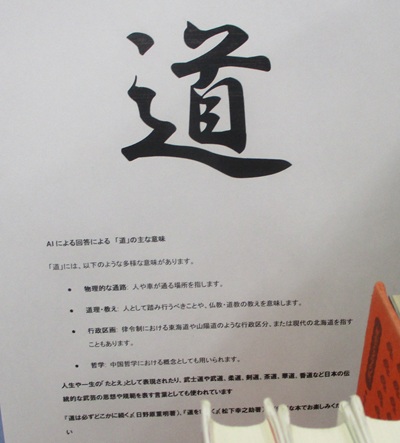 道
AIによる回答による 「道」の主な意味
「道」には、以下のような多様な意味があります。
• 物理的な通路: 人や車が通る場所を指します。
• 道理・教え: 人として踏み行うべきことや、仏教・道教の教えを意味します。
• 行政区画: 律令制における東海道や山陽道のような行政区分、または現代の北海道を指す
こともあります。
• 哲学: 中国哲学における概念としても用いられます。
人生や一生の「たとえ」として表現されたり、武士道や武道、柔道、剣道、茶道、華道、書道など日本の伝
統的な武芸の思想や規範を表す言葉としても使われています
『道は必ずどこかに続く〆(日野原重明著)、『道を
〆(松下幸之助著)
な本でお楽しみくださ
い